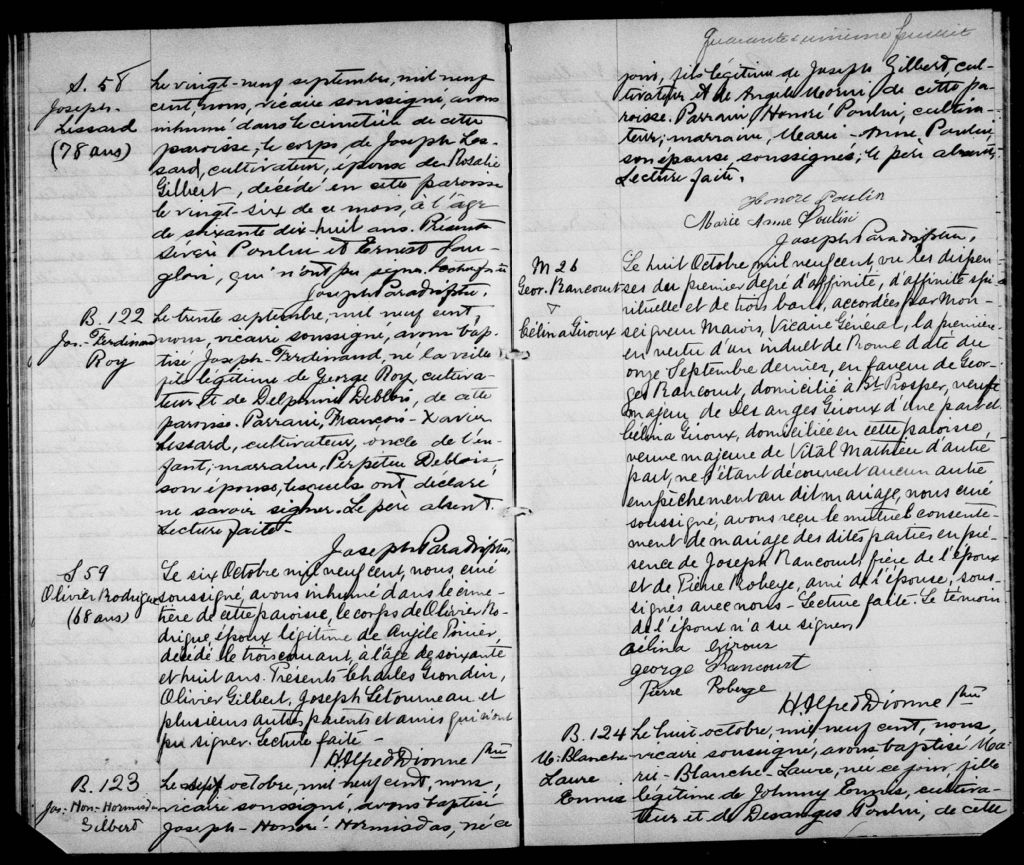 S. 58
Joseph-
Lessard
(78 ans)
Le vingt-neuf septembre, mil neuf
cent, nous, vicaire soussigné, avons
inhumé dans le cimetière de cette
paroisse, le corps de Joseph Les-
sard, cultivateur, époux de Rosalie
Gilbert, décédé en cette paroisse
le vingt-six de ce mois, à l'âge
de soixante dix-huit ans. Présents
Poulin et Ernest
qui n'ont pu signer. Lecture faite
Joseph Paradis Ptre.
B. 122
Jos.-Ferdinand
Roy
Le trente septembre, mil neuf cent,
nous, vicaire soussigné, avons bap-
tisé Joseph-Ferdinand, né la veille
fils légitime de George Roy, cultiva-
teur et de Delphine Deblois, de cette
paroisse. Parrain, François-Xavier
Lessard, cultivateur, oncle de l'en-
fant; marraine, Perpétue Deblois,
son épouse, lesquels ont déclaré
ne savoir signer. Le père absent.
Lecture faite-
Joseph Paradis Ptre.
S 59
Olivier Rodrigue
(68 ans)
Le six Octobre mil neuf cent, nous, curé
soussigné, avons inhumé dans le cime-
tière de cette paroisse, le corps de Olivier Ro-
drigue, époux légitime de Angèle Poirier,
décédé le trois courant, à l'âge de soixante
et huit ans. Présents Charles Grondin,
Olivier Gilbert, Joseph Létourneau et
plusieurs autres parents et amis qui n'ont
pu signer. Lecture faite-
H Alfred Dionne Ptre
B. 123
Jos.-Hon-Hormisdas
Gilbert
Le sept octobre, mil neuf cent, nous,
vicaire soussigné, avons baptisé
Joseph-Honoré-Hormisdas, né ce
Quarante-unième feuillet
jour, fils légitime de Joseph Gilbert, cul-
tivateur et de Angèle Morin de cette pa-
roisse. Parrain Honoré Poulin, cultiva-
teur; marraine, Marie-Anne Poulin,
son épouse, soussignés; le père absent.
Lecture faite.
Honoré Poulin
Marie Anne Poulin
Joseph Paradis Ptre.
M 26
Geor. Rancourt
&
Célina Giroux
Le huit Octobre mil neuf cent, vu les dispen-
ses du premier degré d'affinité, d'affinité spi-
rituelle et de trois bans, accordées par Mon-
seigneur Marois, Vicaire Général, la première
en vertu d'un indult de Rome daté du
onze Septembre dernier, en faveur de Geor-
ges Rancourt, domicilié à St Prosper, veuf
majeur de Des anges Giroux d'une part et
Célina Giroux, domiciliée en cette paroisse,
veuve majeure de Vital Mathieu d'autre
part, ne s'étant découvert aucun autre
empêchement au dit mariage, nous curé
soussigné, avons reçu le mutuel consente-
ment de mariage des dites parties en pré-
sence de Joseph Rancourt, frère de l'époux
et de Pierre Roberge, ami de l'épouse, sous-
signés avec nous- Lecture faite. Le témoin
de l'époux n'a su signer,
célina giroux
george Rancourt
Pierre Roberge
H Alfred Dionne Ptre
B. 124
M: Blanche
Laure
Ennis
Le huit octobre, mil neuf cent, nous,
vicaire soussigné, avons baptisé Ma-
rie-Blanche-Laure, née ce jour, fille
légitime de Johnny Ennis, cultiva-
teur et de Desanges Poulin, de cette